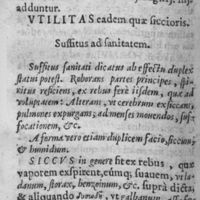 adduntur.
VTILITAS eadem quæ siccioris.
Suffitus ad sanitatem.
Suffitus sanitati dicatus ab effectu duplex
statui potest. Roborans partes principes, spiri-
tus reficiens, ex rebus ferè iisdem, quæ ad
voluptatem: Alterans, vt cerebrum exsiccans,
pulmones expurgans; ad menses mouendos, suf-
focationem, &c.
A forma verò etiam duplicem facio, siccum &
humidum.
SICCVS in genere fit ex rebus, quæ
vaporem exspirent, eúmq; suauem, vt la-
danum, storax, benzoinum, &c. suprà dicta;
& aliquando vt galbanum